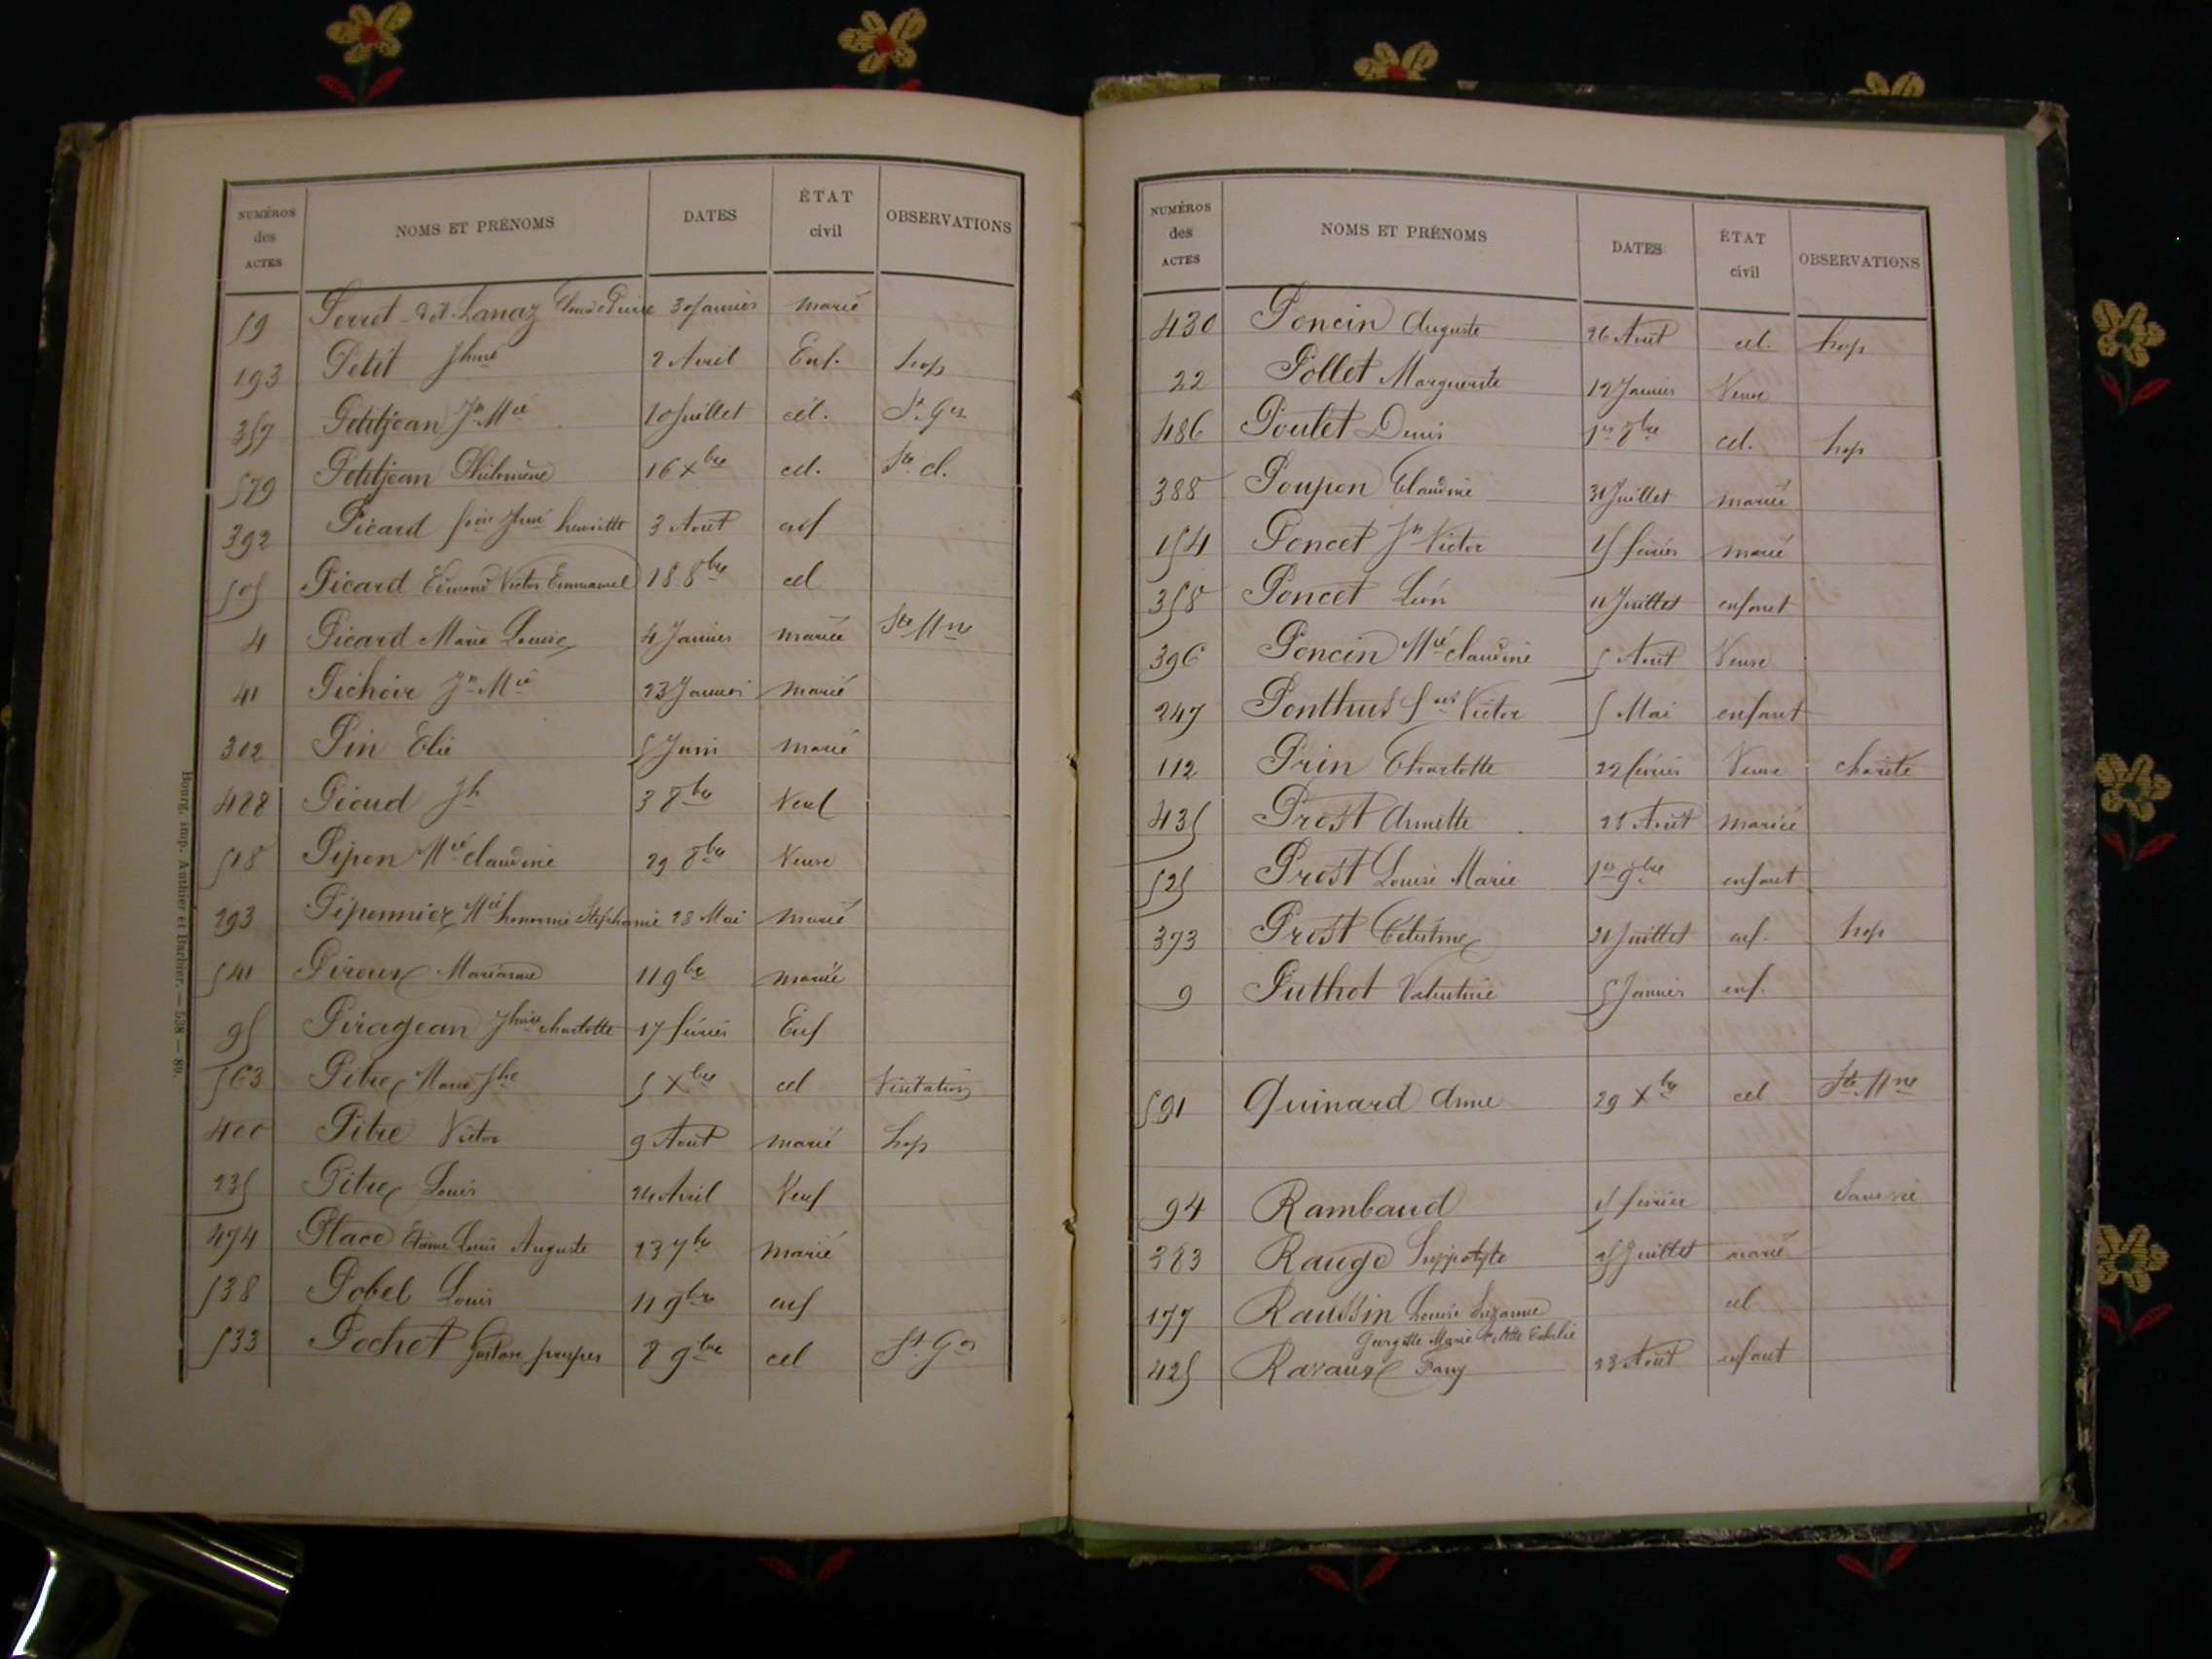 NUMÉROS des ACTES NOMS ET PRÉNOMS DATES ÉTAT civil OBSERVATIONS
59 Perret dit Lanaz Claude Pierre 30 Janvier marié
193 Petit Jhine 2 Avril Enf. hop
357 Petitjean Jn Mie 10 Juillet cél. St. Ges
579 Petitjean Philomène 16 Xbre cel. Ste cl.
392 Picard Jhine henriette 3 Aout enf
505 Picard Edmond Victor Emmanuel 18 8bre cel
4 Picard Marie Louise 4 Janvier mariée Ste Mne
41 Pichoir Jn Mie 23 Janvier marié
302 Pin Elie 5 Juin marié
488 Picud Jh 3 8bre Veuf
518 Pipon Mie claudine 29 8bre Veuve
293 Piponnier Mie honorine Stéphanie 28 Mai mariée
541 Piroux Marianne 11 9bre mariée
95 Piragean Jhine charlotte 17 février Enf
563 Pitre Marie Jhe 5 Xbre cel Visitation
400 Pitre Victor 9 Aout marié hop
235 Pitre Louis 24 Avril Veuf
474 Place Louis Auguste 23 7bre marié
538 Pobel Louis 11 9bre enf
533 Pochet Gustave prosper 8 9bre cel St Ges
Bourg, imp. Authier et Barbier. — 538 — 89.
NUMÉROS des ACTES NOMS ET PRÉNOMS DATES ÉTAT civil OBSERVATIONS
430 Poncin Auguste 26 Aout cel. hop
22 Pollet Marguerite 12 Janvier Veuve
486 Poulet Denis 1er 8bre cel. hop
388 Poupon Claudine 31 Juillet mariée
154 Poncet Jn Victor 15 février marié
358 Poncet Léon 11 Juillet enfant
396 Poncin Mie claudine 5 Aout Veuve
247 Ponthus fois Victor 5 Mai enfant
112 Prin Charlotte 22 février Veuve charité
435 Prost Annette 28 Aout mariée
525 Prost Louise Marie 1er 9bre enfant
373 Prost Célestine 21 Juillet enf. hop
9 Puthot Valentine 5 Janvier enf.
591 Quinard Anne 29 Xbre cel Ste Mne
94 Rambaud 15 février Sans vie
383 Raugé hippolyte 25 Juillet marié
177 Raussin Louise Suzanne cel
Georgette Marie
425 Ravaux Fany 23 Aout enfant